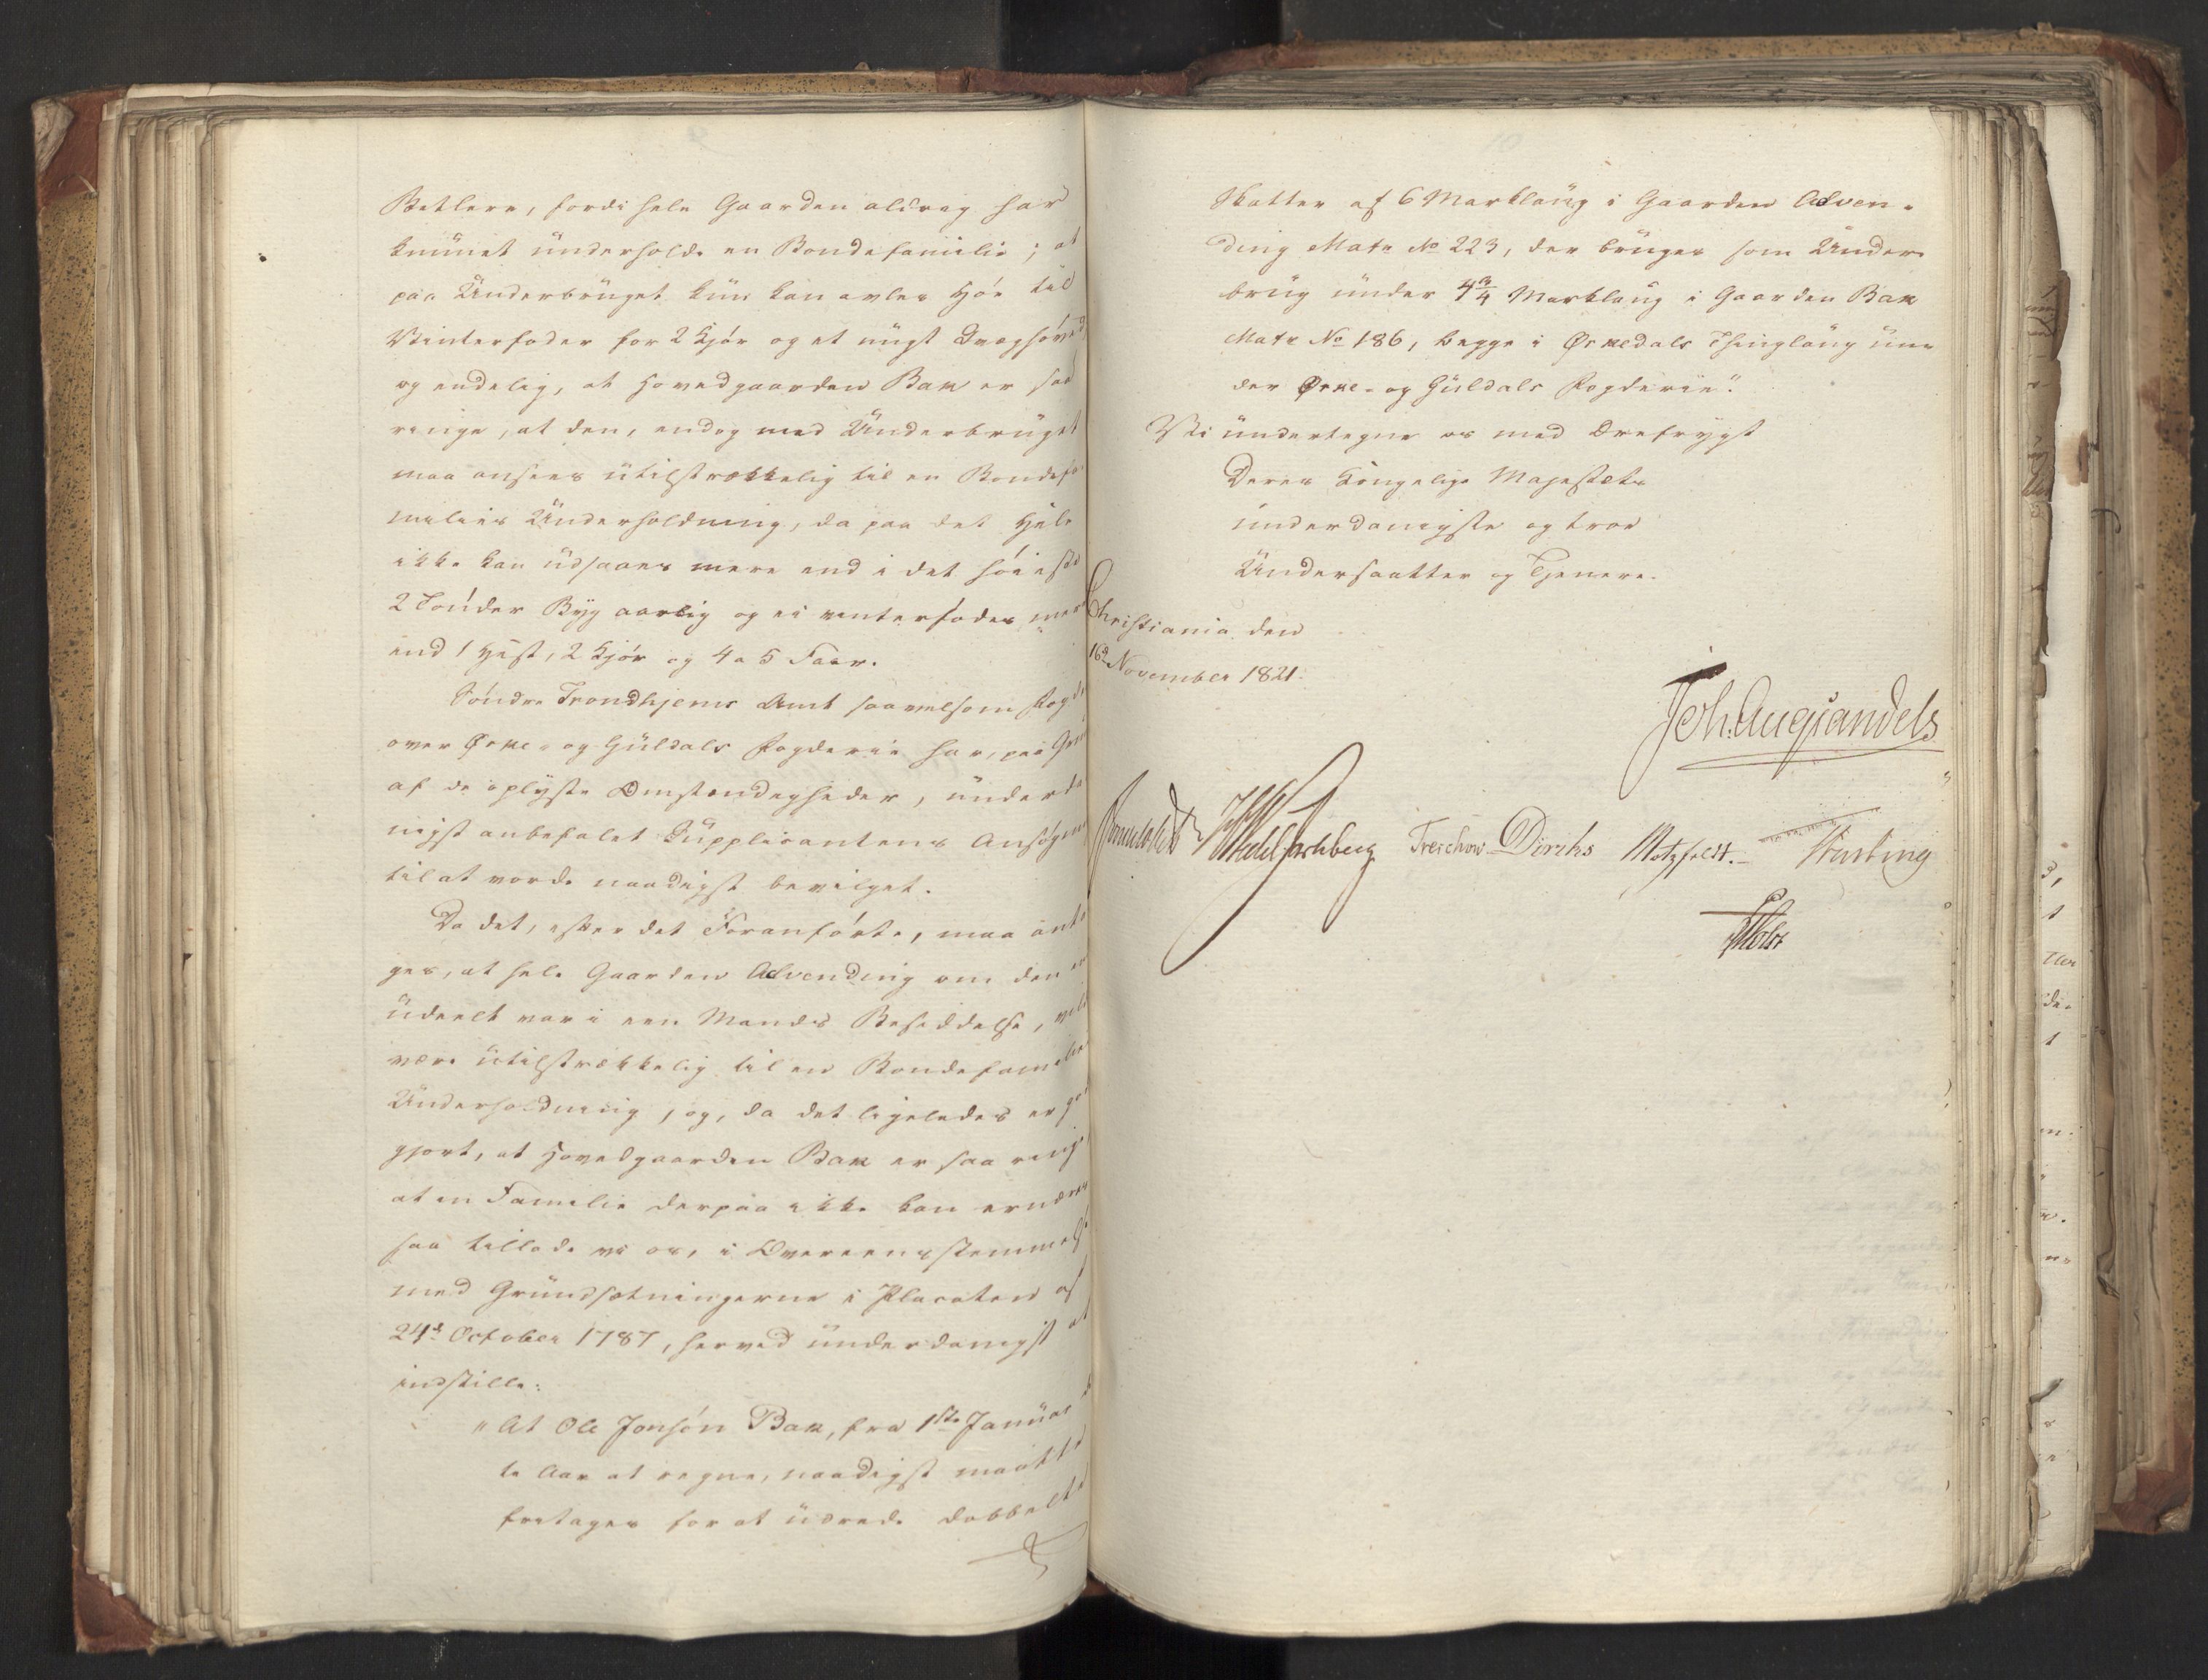 Betlere, fordi hele Gaarden aldrig har
kunnet underholde en Bondefamilie; at
paa Underbruget kun kan avles Høe til
Vinterfoder for 2 Kjør og et ungt Qvæghøved,
og endelig, at Hovedgaarden Bak er saa
ringe, at den, endog med Underbruget
maa ansees utilstrækkelig til en Bondefa-
milies Underholdning, da paa det Hele
ikke kan udsaaes mere end i det høieste
2 Tønder Byg aarlig og ei vinterfødes mere
end 1 Hest, 2 Kjør og 4 a 5 Faar.
Søndre Trondhjems Amt saavelsom Fogden
over Örke- og Guldals Fogderie har, paa Grund
af de oplyste Omstændigheder, underda-
nigst anbefalet Supplicantens Ansøgning
til at vorde naadigst bevilget.
Da det, efter det Foranførte, maa anta-
ges, at hele Gaarden Advending om den
udeelt var i een Mands Besiddelse, vilde
være utilstrækkelig til en Bondefamilies
Underholdning, og, da det ligeledes er god-
gjort, at Hovedgaarden Bak er saa ringe
at en Familie derpaa ikke kan ernæres
saa tillade vi os, i Overeensstemmelse
med Grundsætningerne i Placaten af
24d October 1787, herved underdanigst at
indstille:
"At Ole Jonsön Bak, fra 1ste Januar
te Aar at regne, naadigst maatte
fritages for at udrede dobbelte
Skatter af 6 Marklaug i Gaarden Adven-
ding Matr No 223, der bruges som Under-
brug under 4 3/4 Marklaug i Gaarden Bak
Matr No 186, begge i Örkedals Thinglaug un-
der Örke- og Guldals Fogderie".
Vi undertegne os med Ærefrygt
Deres Kongelige Majestæts
underdanigste og troe
Undersaatter og Tjenere.
Christiania den
16d November 1821.
Joh. Aug Sandels
Sommerhielm Hegel Falchberg Treschow Diriks Motzfeldt. Fasting
Holst